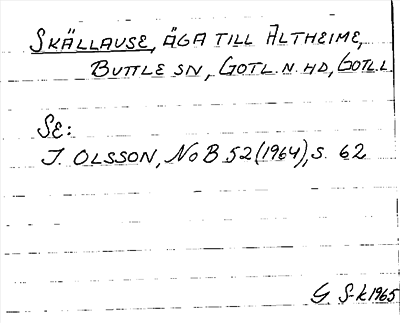 SKÄLLAUSE, ÄGA TILL ALTHEIME,
BUTTLE SN, GOTL. N. HD, GOTL.L
SE:
J. OLSSON, NoB 52 (1964), S. 62
G S-k 1965